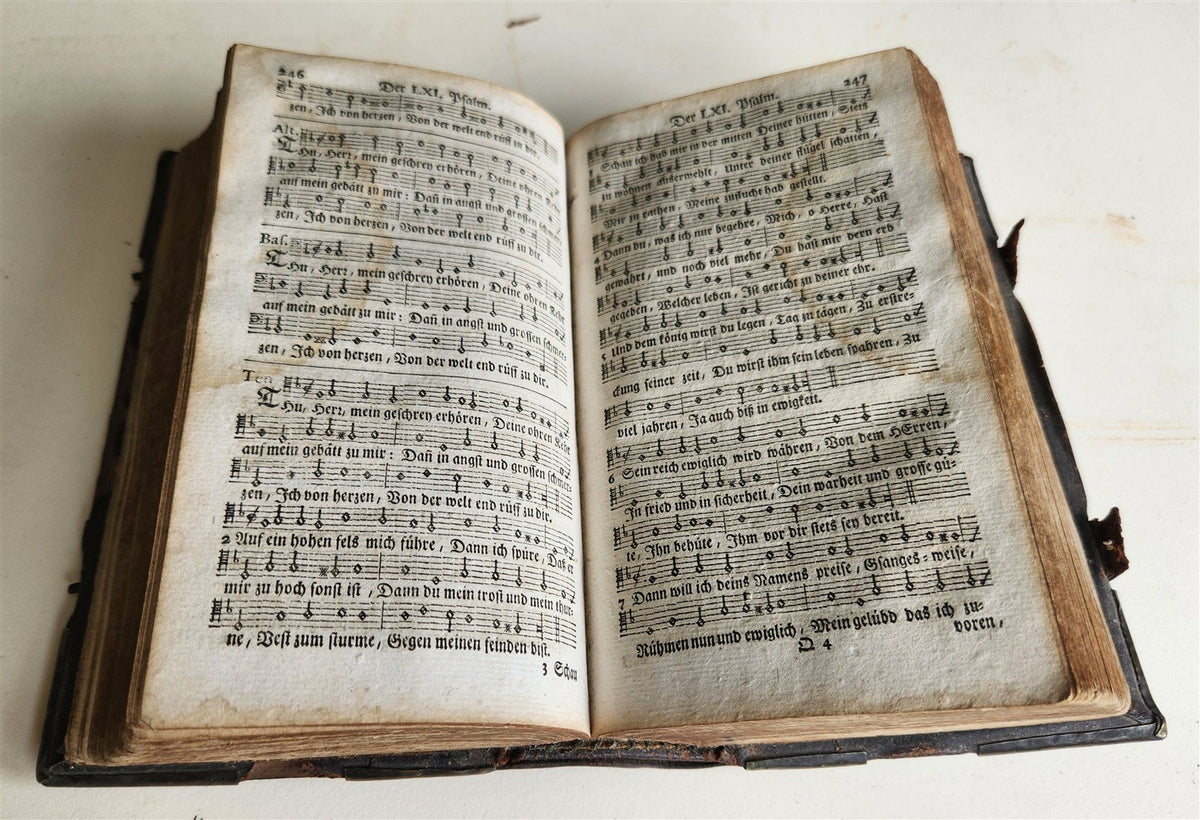 246
Der LXI. Psalm.
zen, Ich von herzen, Von der welt end rüff zu dir.
Alt.
THu, Herr, mein geschrey erhören, Deine ohren
auf mein gebätt zu mir: Dañ in angst und grossen
zen, Ich von herzen, Von der welt end rüff zu dir.
Bas.
THu, Herr, mein geschrey erhören, Deine ohren Kehr
auf mein gebätt zu mir: Dañ in angst und grossen schmer-
zen, Ich von herzen, Von der welt end rüff zu dir.
Ten.
THu, Herr, mein geschrey erhören, Deine ohren Kehr
auf mein gebätt zu mir: Dañ in angst und grossen schmer-
zen, Ich von herzen, Von der welt end rüff zu dir.
2 Auf ein hohen fels mich führe, Dann ich spüre, Daß er
mir zu hoch sonst ist, Dann du mein trost und mein thur-
ne, Vest zum sturme, Gegen meinen feinden bist.
3 Schau
Der LXI. Psalm.
247
Schau ich hab mir in der mitten Deiner hütten, Stets
zu wohnen außerwehlt, Unter deiner flügel schatten,
Mir zu rathen, Meine zuflucht hab gestellt.
4 Dann du, was ich nur begehre, Mich, o Herre, Hast
gewährt, und noch viel mehr, Du hast mir dern erb
gegeben, Welcher leben, Ist gericht zu deiner ehr.
5 Und dem könig wirst du legen, Tag zu tägen, Zu erstre-
ckung seiner zeit, Du wirst ihm sein leben spahren, Zu
viel jahren, Ja auch biß in ewigkeit.
6 Sein reich ewiglich wird währen, Von dem HErren,
In fried und in sicherheit, Dein warheit und grosse gü-
te, Ihn behüte, Ihm vor dir stets sey bereit.
7 Dann will ich deins Namens preise, Gsanges-weise,
Rühmen nun und ewiglich, Mein gelübd das ich zu-
Q 4
voren,